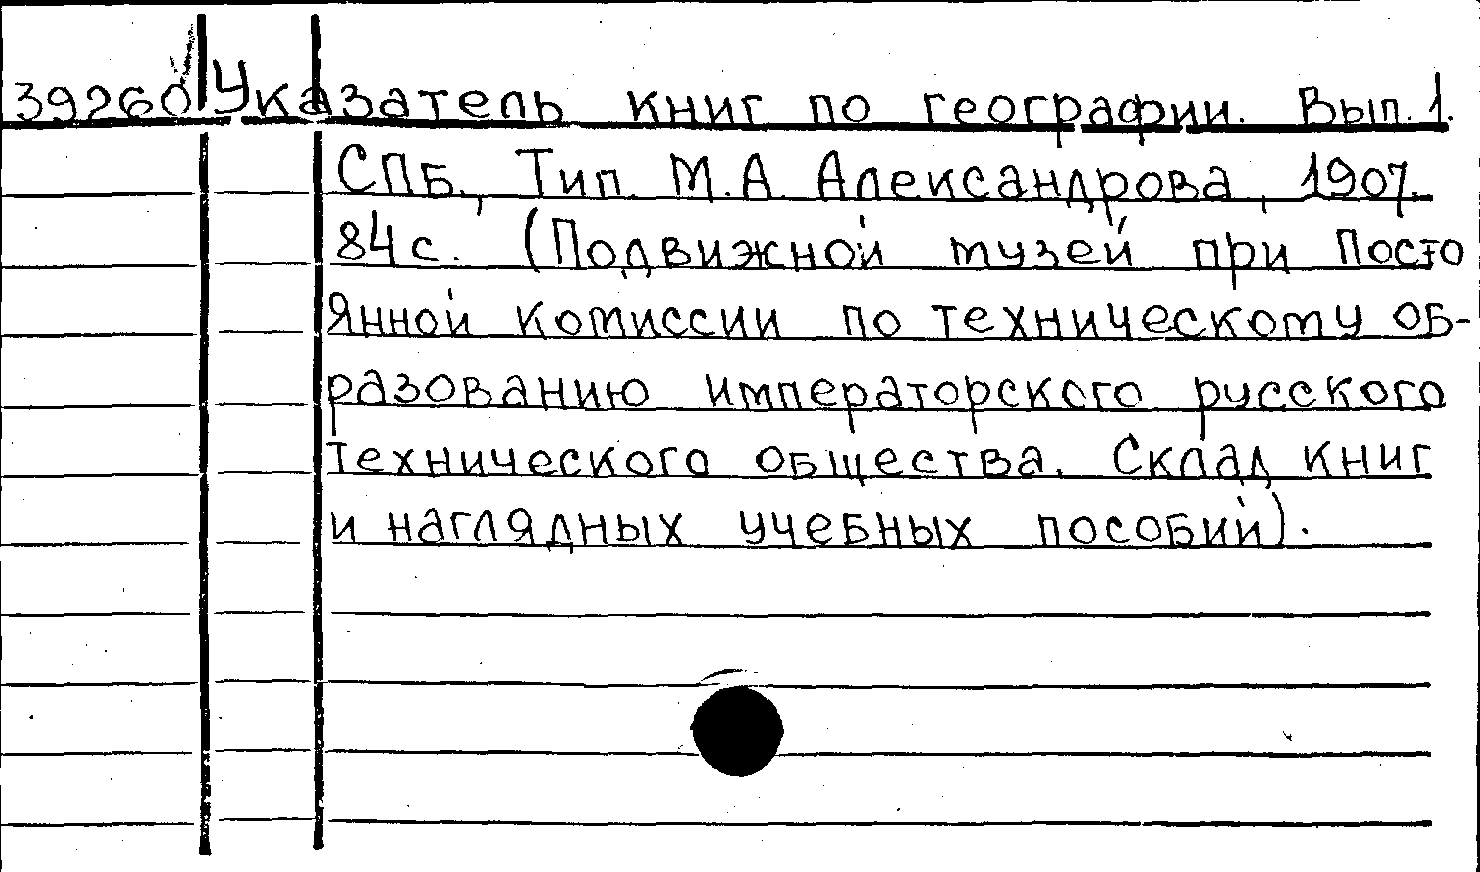 39260 Указатель книг по географии. Вып. 1.
СПБ., Тип. М.А. Александрова, 1907.
84 с. (Подвижной музей при Посто
янной комиссии по техническому об-
разованию императорского русского
технического общества. Склад книг
и наглядных учебных пособий).